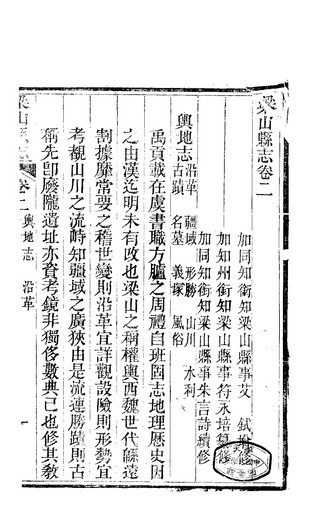 梁山縣志卷二
加同知銜知梁山縣事艾　鉽
加知州銜知梁山縣事符永培纂修
加同知銜知梁山縣事朱言詩續修
輿地志 沿革　疆域　形勝　山川　水利
古蹟　名墓　義塚　風俗
禹貢載在虞書職方臚之周禮自班固志地理歷史因
之由漢迄明未有改也梁山之稱權輿西魏世代緜遠
割據靡常要之稽世變則沿革宜詳觀設險則形勢宜
考覩山川之流峙知疆域之廣狹由是流連勝蹟則古
稱先卽廢隴遺址亦資考鏡非獨侈數典已也修其敎
梁山縣志
卷二 輿地志　沿革　一